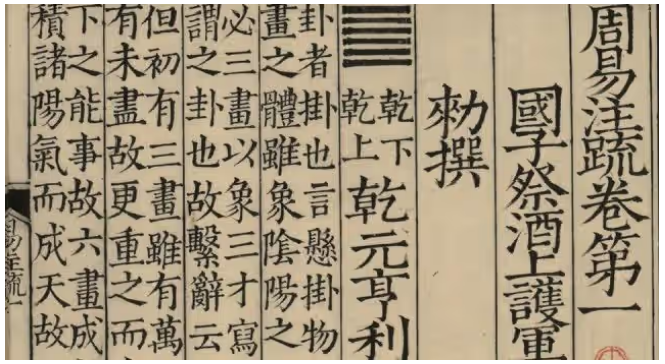 周易注疏卷第一
國子祭酒上護軍
勑撰
乾下
乾上
乾元亨利
卦者掛也言懸掛物
畫之體雖象陰陽之
必三畫以象三才寫
謂之卦也故繫辭云
但初有三畫雖有萬
有未盡故更重之而
下之能事故六畫成
積諸陽氣而成天故
易注疏一